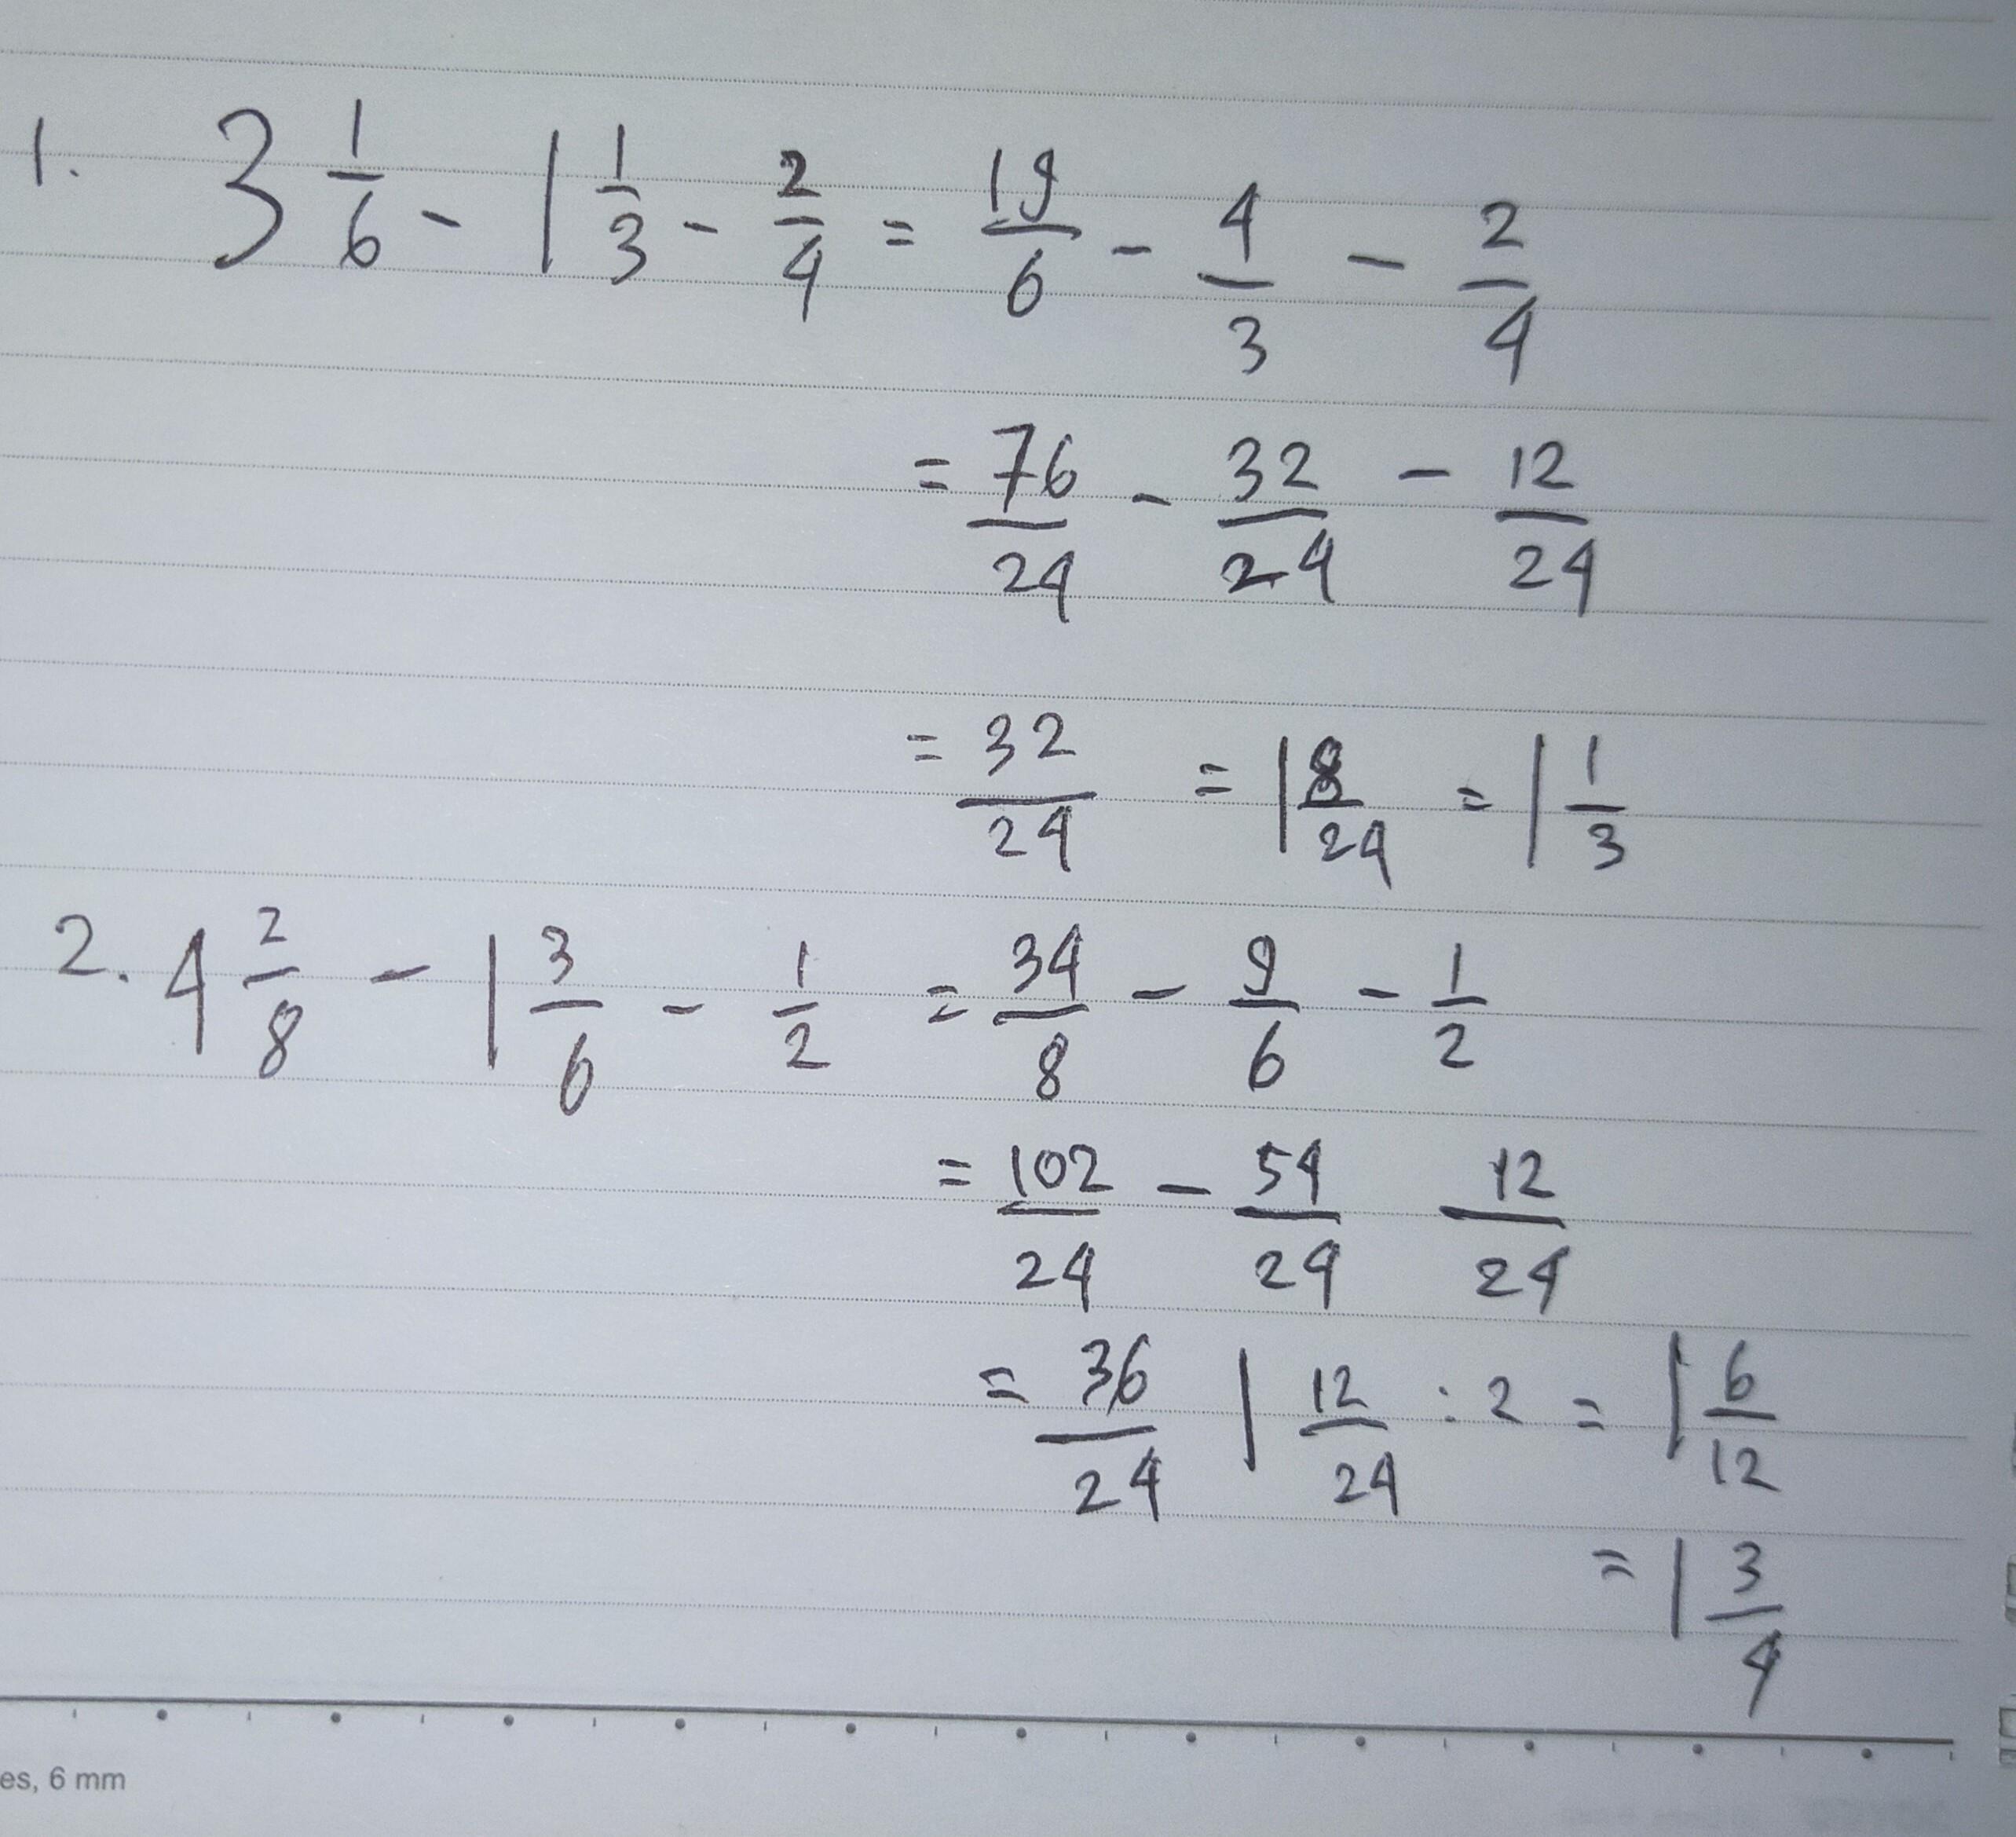 1. 3 1/6 - 1 1/3 - 2/4 = 19/6 - 4/3 - 2/4
= 76/24 - 32/24 - 12/24
= 32/24 = 1 8/24 = 1 1/3
2. 4 2/8 - 1 3/6 - 1/2 = 34/8 - 9/6 - 1/2
= 102/24 - 54/24 12/24
= 36/24 1 12/24 : 2 = 1 6/12
= 1 3/4
es, 6 mm